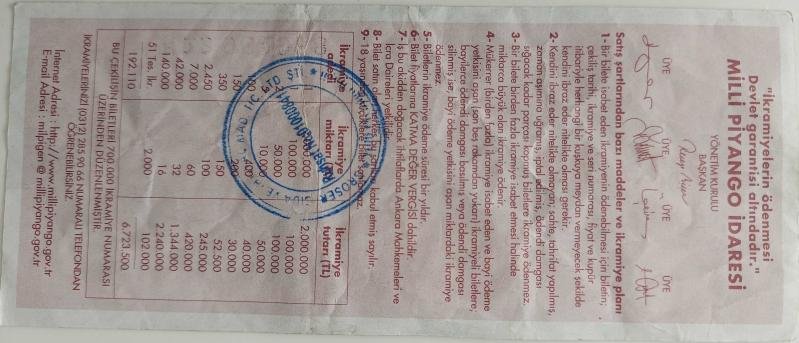 "İkramiyelerin ödenmesi
Devlet garantisi altındadır."
MİLLİ PİYANGO İDARESİ
YÖNETİM KURULU
BAŞKAN
ÜYE ÜYE ÜYE ÜYE
Satış şartlarından bazı maddeler ve ikramiye planı
1- Bir bilete isabet eden ikramiyenin ödenebilmesi için biletin;
çekiliş tarihi, ikramiye ve seri numarası, fiyat ve kupür
itibariyle herhangi bir kuşkuya meydan vermeyecek şekilde
kendini ibraz eder nitelikte olması gerekir.
2- Kendini ibraz eder nitelikte olmayan, sahte, tahrifat yapılmış,
zaman aşımına uğramış, iptal edilmiş, ödendi damgası
sığacak kadar parçası kopmuş biletlere ikramiye ödenmez.
3- Bir bilete birden fazla ikramiye isabet etmesi halinde
miktarca büyük olan ikramiye ödenir.
4- Mükerrer (birden fazla) ikramiye isabet eden ve bayi ödeme
yetkisini aşan
bayilerce ödendi damgası basılmış veya ödendi damgası
silinmiş ise, bayi ödeme yetkisini aşan miktardaki ikramiye
ödenmez.
5- Biletlerin ikramiye ödeme süresi bir yıldır.
6- Bilet fiyatlarına KATMA DEĞER VERGİSİ dahildir.
7- İş bu akidden doğacak ihtilaflarda Ankara Mahkemeleri ve
İcra Daireleri yetkilidir.
8- Bilet satın alan herkes, bu şartları kabul etmiş sayılır.
9- 18 yaşından küçüklere bilet satılmaz.
İkramiye adedi İkramiye miktarı (TL) İkramiye tutarı (TL)
2.000.000
100.000 100.000
50.000 100.000
10.000 50.000
40.000
30.000
150 200 30.000
350 150 52.500
2.450 100 245.000
7.000 60 420.000
42.000 32 1.344.000
140.000 16 2.240.000
51 Tes. İkr. 2.000 102.000
192.110 6.723.500
BU ÇEKİLİŞİN BİLETLERİ 700.000 İKRAMİYE NUMARASI
ÜZERİNDEN DÜZENLENMİŞTİR.
İKRAMİYELERİNİZİ (0312) 285 90 66 NUMARALI TELEFONDAN
ÖĞRENEBİLİRSİNİZ.
İnternet Adresi : http://www.millipiyango.gov.tr
E-mail Adresi : milpigen @ millipiyango.gov.tr